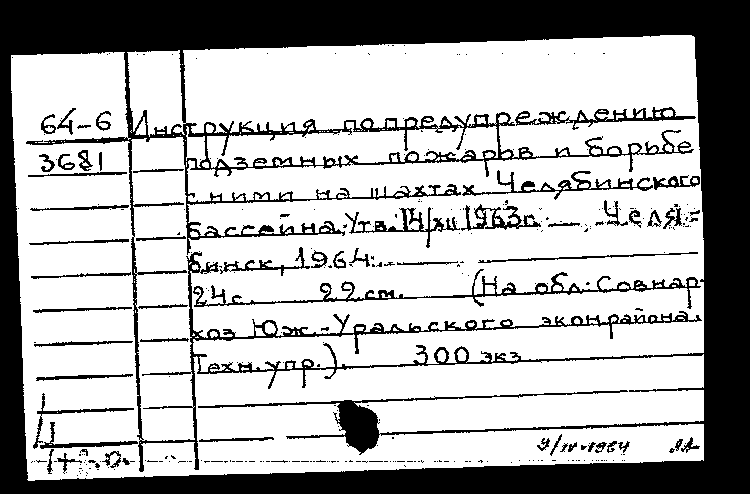 64-6 Инструкция по предупреждению
3681 подземных пожаров и борьбе
с ними на шахтах Челябинского
бассейна. Утв. 14/XII 1963г. Челя=
бинск, 1964.
24с. 22 см. (На обл: Совнар-
хоз Юж.-Уральского эконрайона.
Техн. упр.). 300 экз
9/IV-1964